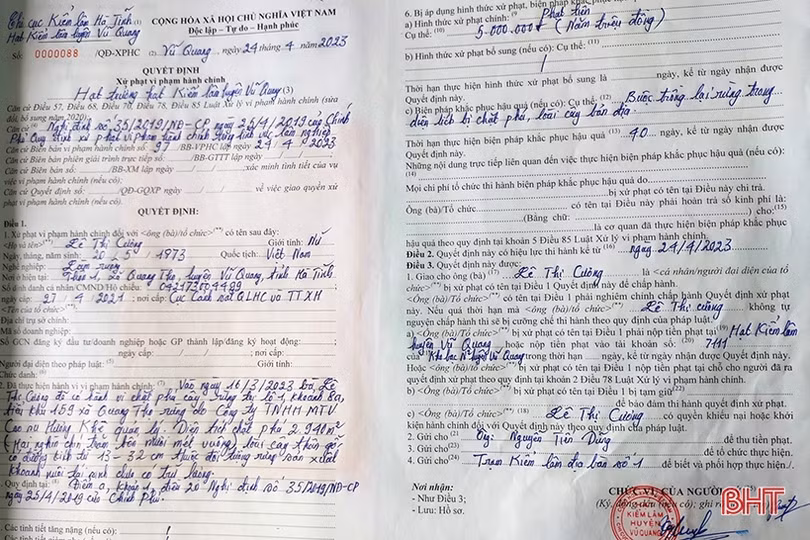 Chi cục Kiểm lâm Hà Tĩnh (1) CỘNG HÒA XÃ HỘI CHỦ NGHĨA VIỆT NAM
Hạt Kiểm lâm huyện Vũ Quang Độc lập – Tự do – Hạnh phúc
Số: 0000088 /QĐ-XPHC (2) Vũ Quang, ngày 24 tháng 4 năm 2023
QUYẾT ĐỊNH
Xử phạt vi phạm hành chính
Hạt trưởng hạt Kiểm lâm huyện Vũ Quang (3)
Căn cứ Điều 57, Điều 68, Điều 70, Điều 78, Điều 85 Luật Xử lý vi phạm hành chính (sửa
đổi, bổ sung năm 2020);
Căn cứ (4) Nghị định số 35/2019/NĐ-CP ngày 25/4/2019 của Chính
Phủ Quy định xử phạt vi phạm hành chính trong lĩnh vực Lâm nghiệp
Căn cứ Biên bản vi phạm hành chính số: 97 /BB-VPHC lập ngày 24 / 4 / 2023
Căn cứ Biên bản phiên giải trình trực tiếp số: /BB-GTTT lập ngày / /
Căn cứ Biên bản số: /BB-XM lập ngày / / xác minh tình tiết của vụ
việc vi phạm hành chính (nếu có);
Căn cứ Quyết định số: /QĐ-GQXP ngày / / về việc giao quyền xử
phạt vi phạm hành chính (nếu có).
QUYẾT ĐỊNH:
Điều 1.
1. Xử phạt vi phạm hành chính đối với <ông (bà)/tổ chức>(**) có tên sau đây:
<Họ và tên>(**): Lê Thị Cường Giới tính: Nữ
Ngày, tháng, năm sinh: 20 / 5 / 1973 Quốc tịch: Việt Nam
Nghề nghiệp: Làm ruộng
Nơi ở hiện tại: Thôn 1 xã Quang Thọ, huyện Vũ Quang, tỉnh Hà Tĩnh
Số định danh cá nhân/CMND/Hộ chiếu: 042173004499
ngày cấp: 27 / 4 / 2021 ; nơi cấp: Cục Cảnh sát QLHC về TTXH
<Tên của tổ chức>(**):
Địa chỉ trụ sở chính:
Mã số doanh nghiệp:
Số GCN đăng ký đầu tư/doanh nghiệp hoặc GP thành lập/đăng ký hoạt động:
ngày cấp: / / ; nơi cấp:
Người đại diện theo pháp luật: Giới tính:
Chức danh:(6)
2. Đã thực hiện hành vi vi phạm hành chính: (7) Vào ngày 16/3/2023 bà Lê
Thị Cường đã có hành vi chặt phá cây rừng tại lô 1, khoảnh 8a,
tiểu khu 159 xã Quang Thọ rừng do Công ty TNHH MTV
Cao su Hương Khê quản lý. Diện tích chặt phá 2.940m²
(Hai nghìn chín trăm bốn mươi mét vuông) loài cây thân gỗ
có đường kính từ 13 - 32 cm thuộc đối tượng rừng sản xuất
khoanh nuôi tái sinh chưa có trữ lượng.
Quy định tại: (8) Điểm a, khoản 1, điều 20 Nghị định số 35/2019/NĐ-CP
ngày 25/4/2019 của Chính Phủ.
Các tình tiết tăng nặng (nếu có):
6. Bị áp dụng hình thức xử phạt, biện pháp khắc
a) Hình thức xử phạt chính: (9) Phạt tiền
Cụ thể: (10) 5.000.000đ (Năm triệu đồng)
b) Hình thức xử phạt bổ sung (nếu có): Cụ thể: (11)
Thời hạn thực hiện hình thức xử phạt bổ sung là ngày, kể từ ngày nhận được
Quyết định này.
c) Biện pháp khắc phục hậu quả (nếu có): Cụ thể: (12) Buộc trồng lại rừng trong
diện tích bị chặt phá, loài cây bản địa.
Thời hạn thực hiện biện pháp khắc phục hậu quả (13) 40 ngày, kể từ ngày nhận được
Quyết định này.
Những nội dung trực tiếp liên quan đến việc thực hiện biện pháp khắc phục hậu quả (nếu có):
(14)
Mọi chi phí tổ chức thi hành biện pháp khắc phục hậu quả do
bị xử phạt có tên tại Điều này chi trả.
Ông (bà)/Tổ chức có tên tại Điều này phải hoàn trả số kinh phí là:
(Bằng chữ: ) cho:(15)
là cơ quan đã thực hiện biện pháp khắc phục
hậu quả theo quy định tại khoản 5 Điều 85 Luật Xử lý vi phạm hành chính.
Điều 2. Quyết định này có hiệu lực thi hành kể từ (16) ngày 24/4/2023
Điều 3. Quyết định này được:
1. Giao cho ông (bà) (17) Lê Thị Cường là <cá nhân/người đại diện của tổ
chức>(**) bị xử phạt có tên tại Điều 1 Quyết định này để chấp hành.
<Ông (bà)/Tổ chức>(**) có tên tại Điều 1 phải nghiêm chỉnh chấp hành Quyết định xử phạt
này. Nếu quá thời hạn mà <ông (bà)/tổ chức>(**) Lê Thị Cường không tự
nguyện chấp hành thì sẽ bị cưỡng chế thi hành theo quy định của pháp luật.
a) <Ông (bà)/Tổ chức>(**) bị xử phạt có tên tại Điều 1 phải nộp tiền phạt tại (19) Hạt Kiểm lâm
huyện Vũ Quang hoặc nộp tiền phạt vào tài khoản số: (20) 7111
của Kho bạc N² huyện Vũ Quang trong thời hạn ngày, kể từ ngày nhận được Quyết định này.
Hoặc <ông (bà)/tổ chức>(**) bị xử phạt có tên tại Điều 1 nộp tiền phạt tại chỗ cho người đã ra
quyết định xử phạt theo quy định tại khoản 2 Điều 78 Luật Xử lý vi phạm hành chính.
b) <Ông (bà)/Tổ chức>(**) bị xử phạt có tên tại Điều 1 bị tạm giữ(22)
để bảo đảm thi hành quyết định xử phạt.
c) <Ông (bà)/Tổ chức>(**) (18) Lê Thị Cường có quyền khiếu nại hoặc khởi
kiện hành chính đối với Quyết định này theo quy định của pháp luật.
2. Gửi cho(21) Ông: Nguyễn Tiến Dũng để thu tiền phạt.
3. Gửi cho(23) để tổ chức thực hiện.
4. Gửi cho(24) Trạm Kiểm lâm địa bàn số 1 để biết và phối hợp thực hiện./.
Nơi nhận:
- Như Điều 3;
- Lưu: Hồ sơ.
KIỂM LÂM
HUYỆN
VŨ QUANG
BHT